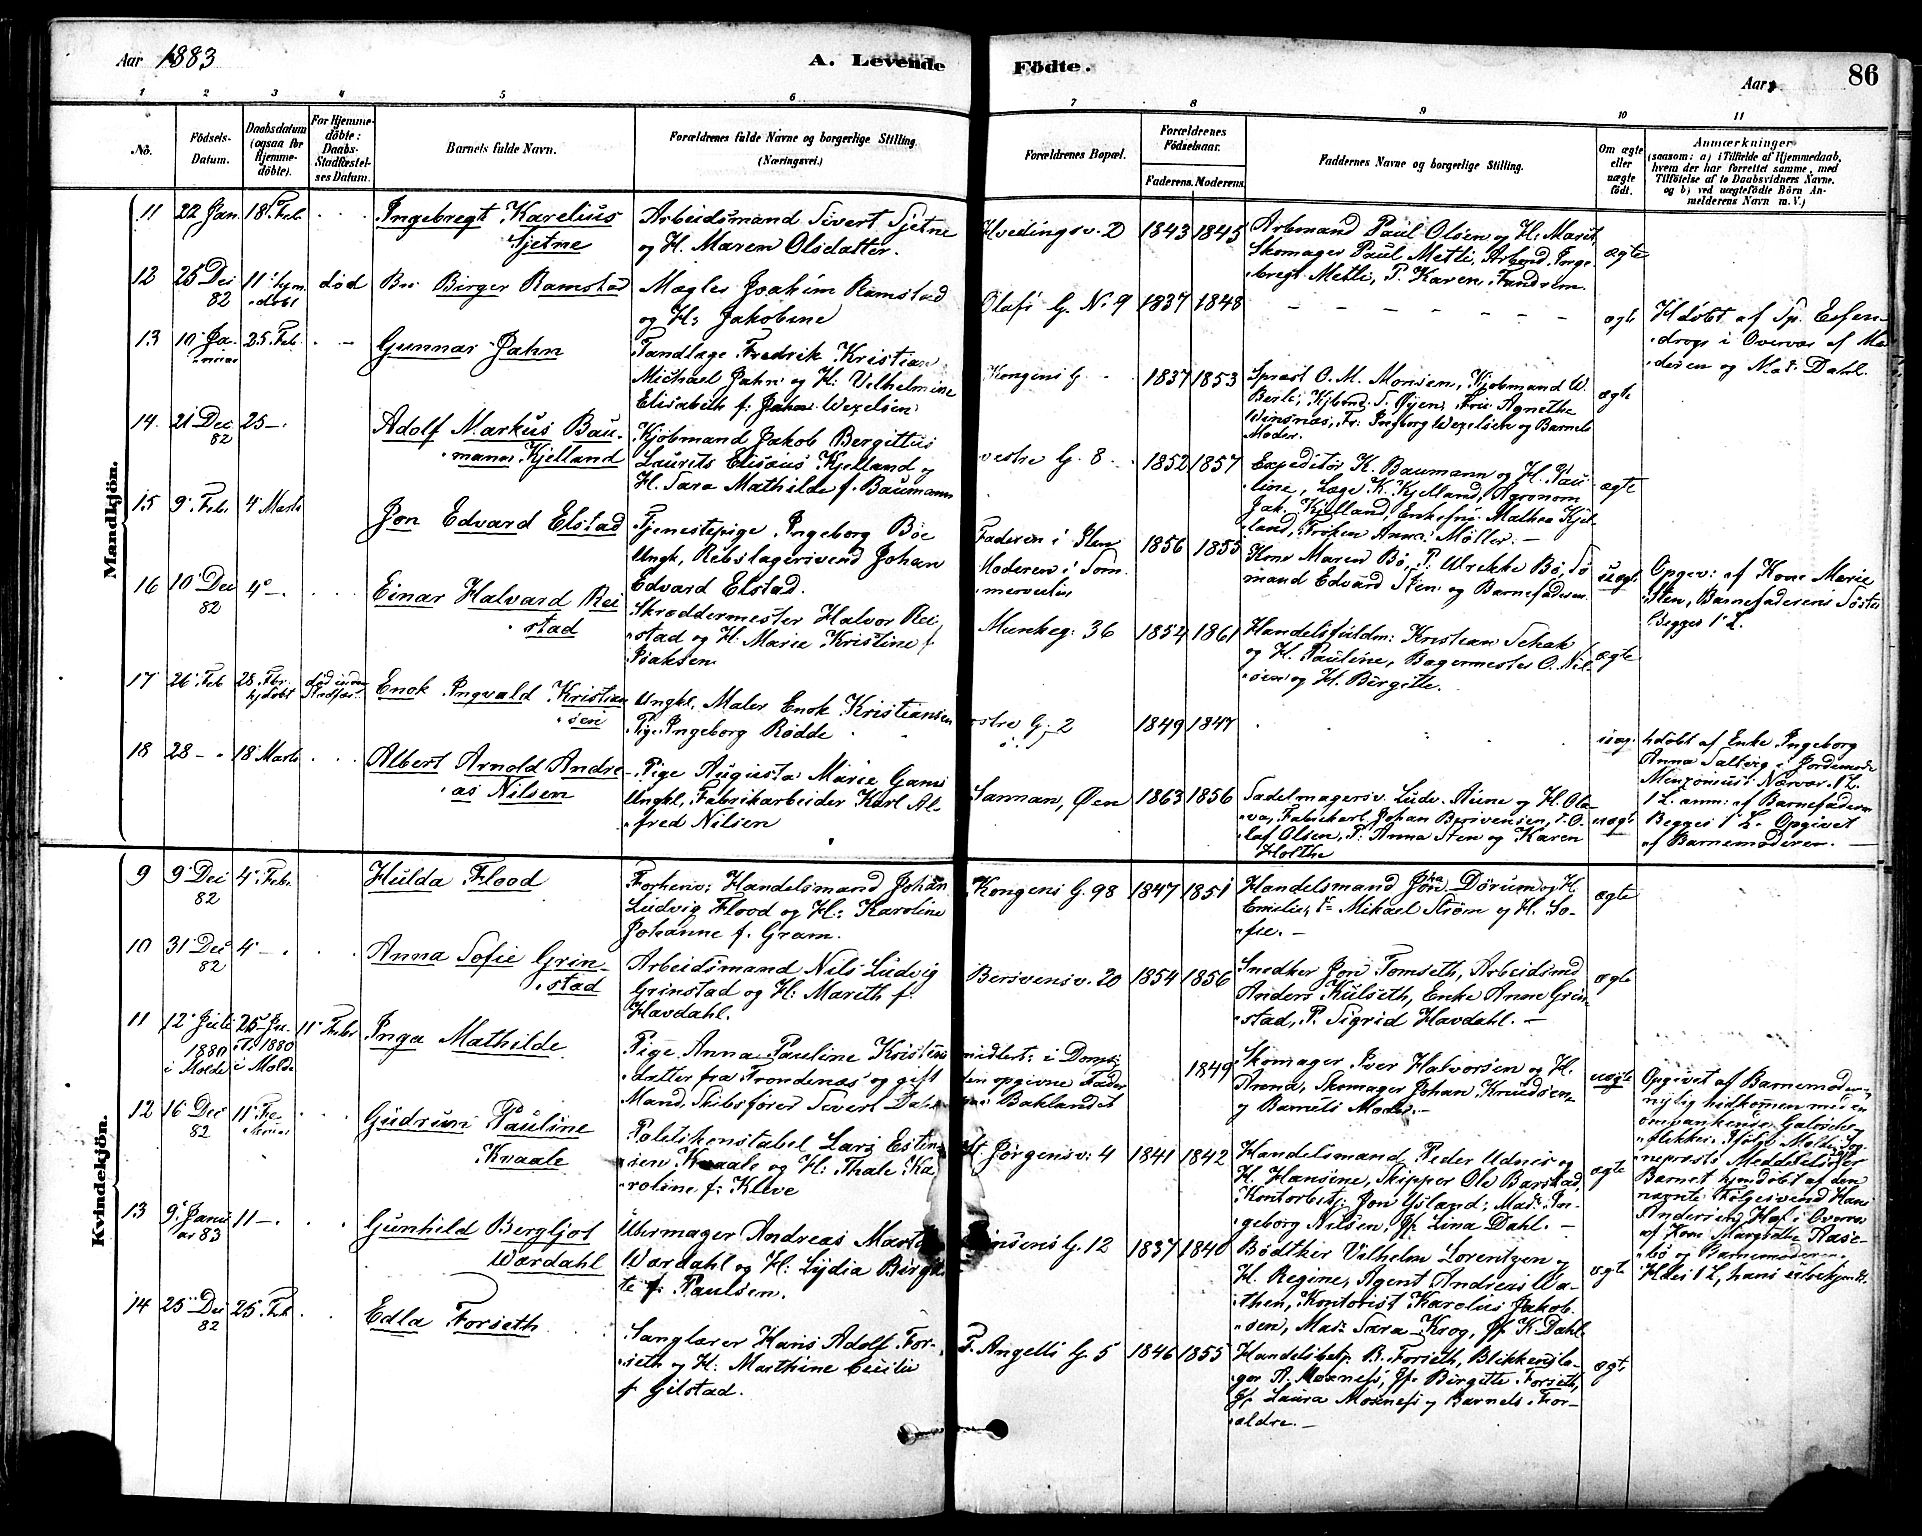 Aar 1883
A. Levende Födte.
Aar
86
1 2 3 4 5 6 7 8 9 10 11
No.
Födsels-Datum.
Daabsdatum (ogsaa for Hjemmedöbte).
For Hjemmedöbte: Daabs-Stadfæstelses Datum.
Barnets fulde Navn.
Forældrenes fulde Navne og borgerlige Stilling. (Næringsvei.)
Forældrenes Bopæl.
Forældrenes Födselsaar.
Faderens. Moderens.
Faddernes Navne og borgerlige Stilling.
Om ægte eller uægte födt.
Anmærkninger
(saasom: a) i Tilfælde af Hjemmedaab, hvem der har forrettet samme, med Tilföielse af to Daabsvidners Navne, og b) ved uægtefödte Börn Anmelderens Navn m. V.)
Mandkjön.
11 22 Jan 18 Feb.
Ingebregt Karelius
Sjetne
Arbeidsmand Sivert Sjetne
og H. Maren Olsdatter.
Hvedingsv. 2 1843 1845
Arbmand Paul Olsen og H. Marit
Skomager Paul Metli,
Metli, P. Karen
ægte
12 25 Dec 82 11 hjm. døbt død
Birger Ramstad
Mægler Joakim Ramstad
og H: Jakobine
Olafs G. No 9 1837 1848
ægte
Hdöbt af Sp.
i Overvær af
og Dahl.
13 10 Januar 25 Feb.
Gunnar Jahn
Tandlæge Fredrik Kristian
Michael Jahn og H. Vilhelmine
Elisabeth f. Wexelsen
Kongens G. 1837 1853
O. M. Monsen, Kjøbmand W.
S. Øyen, Agnethe
Winsnæs, Fr. Ingborg Wexelsen og Barnets
Moder.
ægte
14. 21 Dec 82 25 –
Adolf Markus Bau-
mann Kjelland
Kjöbmand Jakob Bergittus
Laurits Elisæus Kjelland og
H. Sara Mathilde f. Baumann
vestre G. 8 1852 1857
Expeditör K. Baumann og H. Pau-
line, Læge K. Kjelland, Agronom
Jak. Kjelland, Enkefru Mathea Kjel-
land, Frøken Anna Møller. –
ægte
15 9 Feb 4 Marts
Jon Edvard Elstad
Tjenestepige Ingeborg Böe
Ungk. Rebslagersvend Johan
Edvard Elstad.
Faderen i Ilen
Moderen i Som-
merveita
1856 1855
Kone Maren Bö, P. Ulrikke Bö, Sø-
mand Edvard Sten og Barnefaderen.
uægte
Opgiv: af Kone Marie
Sten, Barnefaderens Söster
Begges 1 L.
16 10 Dec 82 4 –
Einar Halvard Rei-
stad
Skræddermester Halvor Rei-
stad og H. Marie Kristine f.
Isaksen
Munkeg: 36 1854 1861
Handelsfuldm: Kristian Schak
og H. Pauline, Bagermester O. Nil-
sen og H. Birgitte.
ægte
17 26 Feb 28 Febr. hjdøbt
Enok Ingvald Kristian-
sen
Ungkl, Maler Enok Kristiansen
Pige Ingeborg Rödde
østre G. 2 1849 1847
uæg.
hdøbt af Enke Ingeborg
Anna
Nærvær. 1 L.
1 L. anm: af Barnefaderen
18 28 – 18 Marts
Albert Arnold Andre-
as Nilsen
Pige Augusta Marie
Ungkl, Fabrikarbeider Karl Al-
fred Nilsen
Øen 1863 1856
Sadelmagersv. Ludv. Aune og H. Ola-
va, Fabrikarb. Johan Bersvensen, O-
laf Olsen, P. Anna Sten og Karen
Holthe
uægte
Begges 1 L. Opgivet
af Barnemoderen. –
Kvindekjön.
9 9 Dec 82 4 Febr.
Hulda Flood
Forhenv: Handelsmand Johan
Ludvig Flood og H: Karoline
Johanne f. Gram.
Kongens G. 98 1847 1851
Handelsmand Dörum og H.
Emelie, Mikael Ström og H. So-
fie. –
ægte
10 31 Dec 82 4 –
Anna Sofie Grin-
stad
Arbeidsmand Nils Ludvig
Grinstad og H: Mareth f.
Havdahl.
Bersvensv. 20 1854 1856
Snedker Jon Tomseth, Arbeidsmd
Anders Kulseth, Enke Anne Grin-
stad, P. Sigrid Havdahl. –
ægte
11 12 Juli 1880 i Molde 25 1880 i Molde 11 Febr
Inga Mathilde
Pige Anna Pauline Kristens-
datter fra Trondenæs og gift
Mand, Skibsfører Sivert
midlert: i
den opgivne Fader
Baklandet
1849
Skomager Iver Halvorsen og H.
Anna, Skomager Johan Knudsen
og Barnets Moder. –
uægte
Opgivet af Barnemoder
nylig hidkommen med en
omvankende
Ifølge Molde Sog-
nepræsts Meddelelse er
Barnet hjmdöbt af den
nævnte Følgesvend Hans
Andersen i Overvær
af Kone
og Barnemoderen.
Hdes 1 L, hans ubekjendt.
12 16 Dec 82 11 Februar
Gudrun Pauline
Kvaale
Politikonstabel Lars Estin-
sen Kvaale og H: Thale Ka-
roline f: Kleve
St. Jörgensv: 4 1841 1842
Handelsmand Peder Udnes og
H. Hansine, Skipper Ole Barstad,
Kontorbetj: Jon Ysland; Mad. In-
geborg Nilsen, Gf. Lina Dahl. –
ægte
13 9 Januar 83 11 –
Gunhild Bergljot
Wærdahl
Uhrmager Andreas
Wærdahl og H: Lydia Birgit-
te f. Paulsen.
G. 12 1837 1840
Bödtker Vilhelm Lorentzen og
H. Regine, Agent Andreas Wa-
then, Kontorist Karolius Jakob-
sen, Mad. Sara Krog, Gf K. Dahl
ægte
14 25 Dec 82 25 Feb
Edla Forseth
Sanglærer Hans Adolf For-
seth og H: Marthine Cecilie
f. Gilstad.
T. Angells G. 5 1846 1855
Handelsbetj. B. Forseth, Blikkensla-
ger A. Mosness, Gf. Birgitte Forseth,
Gf. Laura Mosness og Barnets For-
ældre. –
ægte